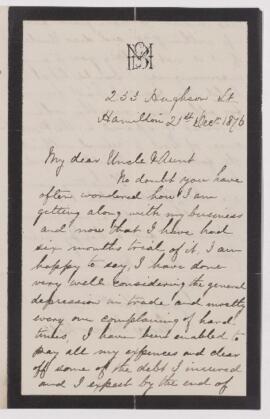 253 Hughson St
Hamilton 21st Decr 1876
My dear Uncle & Aunt
No doubt you have
often wondered how I am
getting along with my business
and now that I have had
six months trial of it I am
happy to say, I have done
very well considering the general
depression in trade and mostly
every one complaining of hard
times, I have been enabled to
pay all my expences and clear
off some of the debt I incured
and I expect by the end of